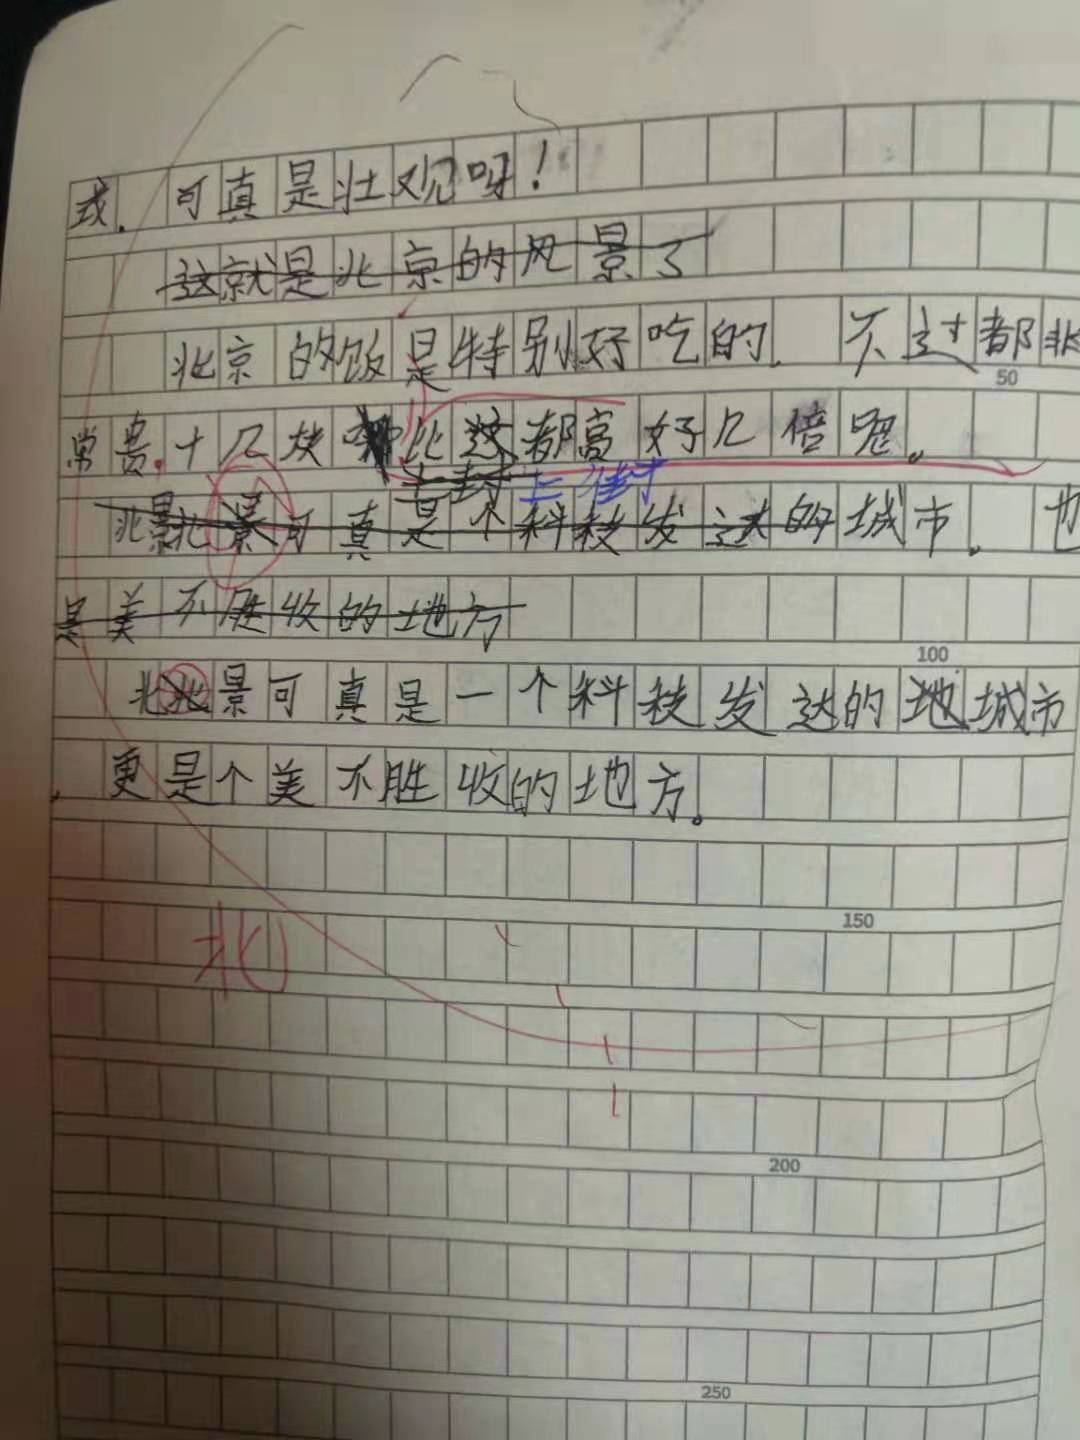 或.可真是壮观呀！
这就是北京的风景了
北京的饭是特别好吃的.不过都非
常贵.十几块比这都高好几倍呢。
上封上封
北景北景可真是个科技发达的城市.也
是美不胜收的地方
北北景可真是一个科技发达的地城市
.更是个美不胜收的地方。
北
50
100
150
200
250